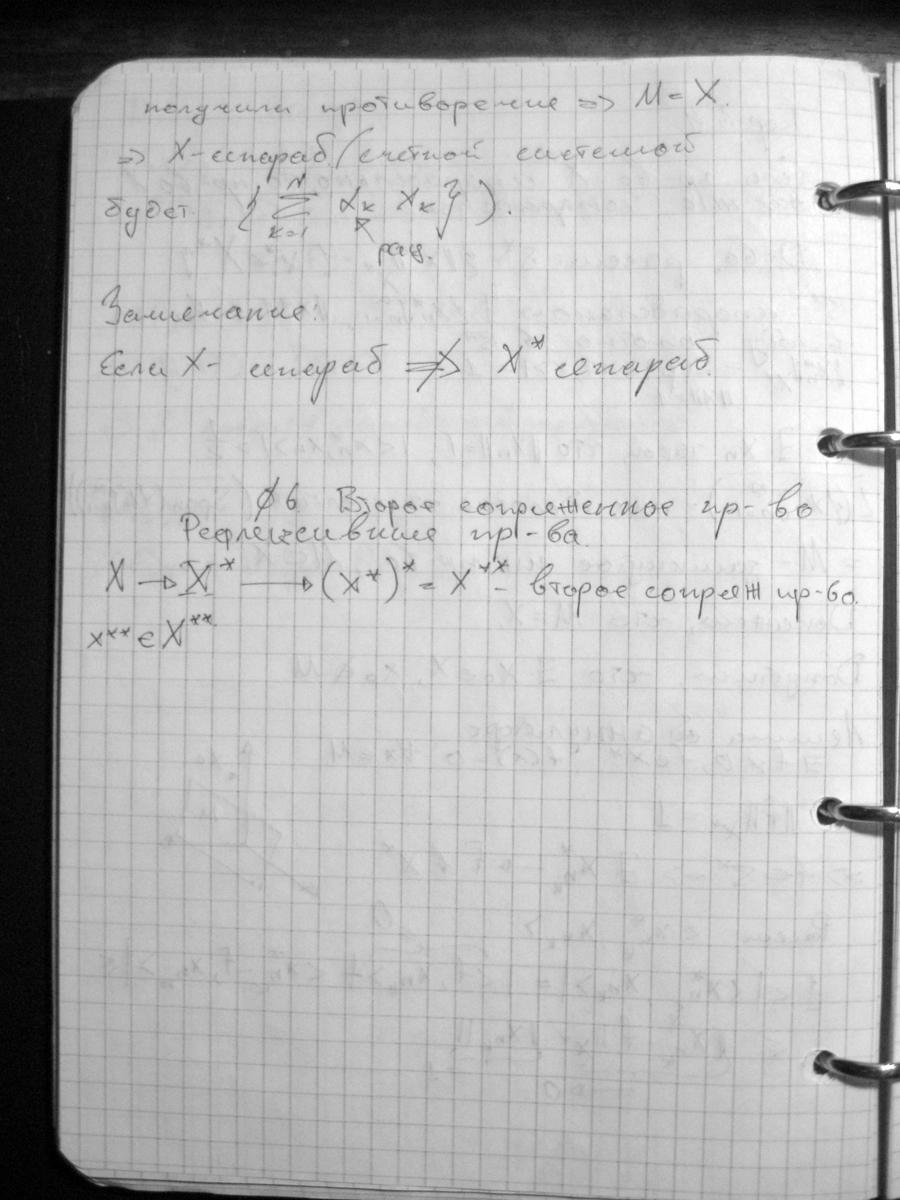 получили противоречие => M = X.
=> X - сепараб. (счетной системой
будет { ∑_{k=1}^{N} α_k x_k } ).
рац.
Замечание:
Если X - сепараб ≠> X* сепараб.
§6 Второе сопряженное пр-во
Рефлексивные пр-ва.
X → X* → (X*)* = X** - второе сопряж пр-во.
x** ∈ X**